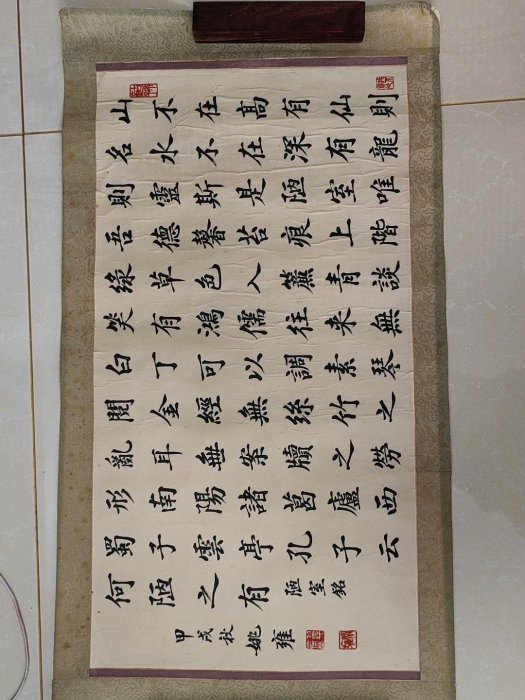 山不在高有仙則
名水不在深有龍
則靈斯是陋室唯
吾德馨苔痕上階
綠草色入簾青談
笑有鴻儒往来無
白丁可以調素琴
閱金經無絲竹之
亂耳無案牘之勞
形南陽諸葛廬西
蜀子雲亭孔子云
何陋之有 陋室銘
甲戌秋 姚雍